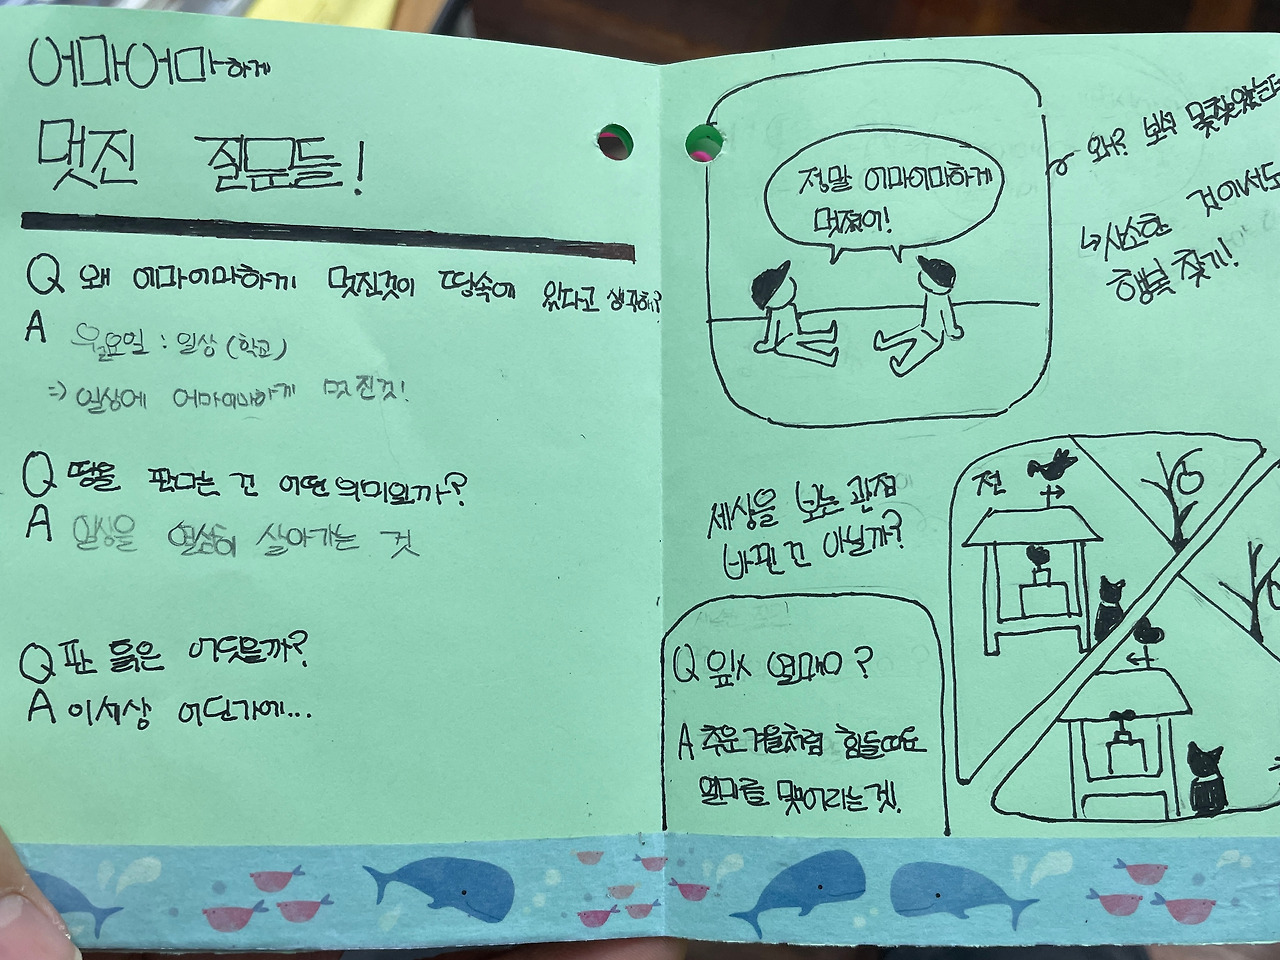 어마어마하게
멋진 질문들!
Q 왜 어마어마하게 멋진것이 땅속에 있다고 생각해?
A
월요일 : 일상 (학교)
=> 일상에 어마어마하게 멋진것!
Q 땅을 판다는 건 어떤 의미일까?
A 일상을 열심히 살아가는 것
Q 판 흙은 어딨을까?
A 이세상 어딘가에...
정말 어마어마하게
멋졌어!
왜? 보석 못찾았는데
↳사소한 것이서도
행복 찾기!
세상을 보는 관점
바뀐 건 아닐까?
전
Q 잎시 열매 ?
A 추운겨울처럼 힘들때도
열매를 맺어라는것.